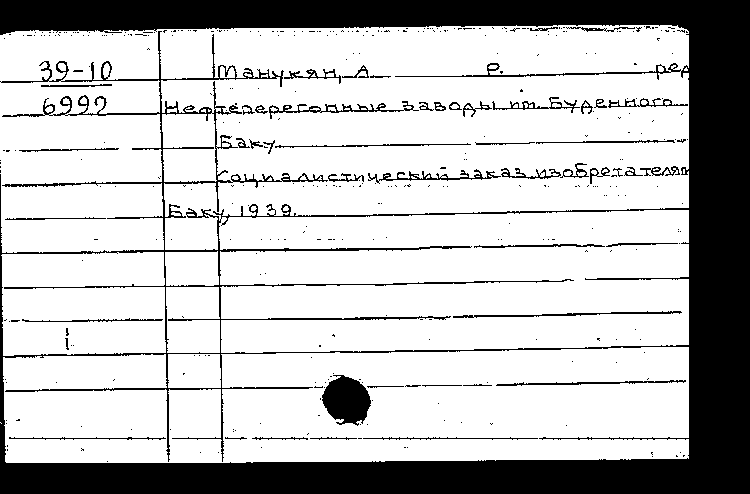 39-10 Манукян, А. Р. ред
6992 Нефтеперегонные заводы им. Буденного
Баку.
Социалистический заказ изобретателям
Баку, 1939.